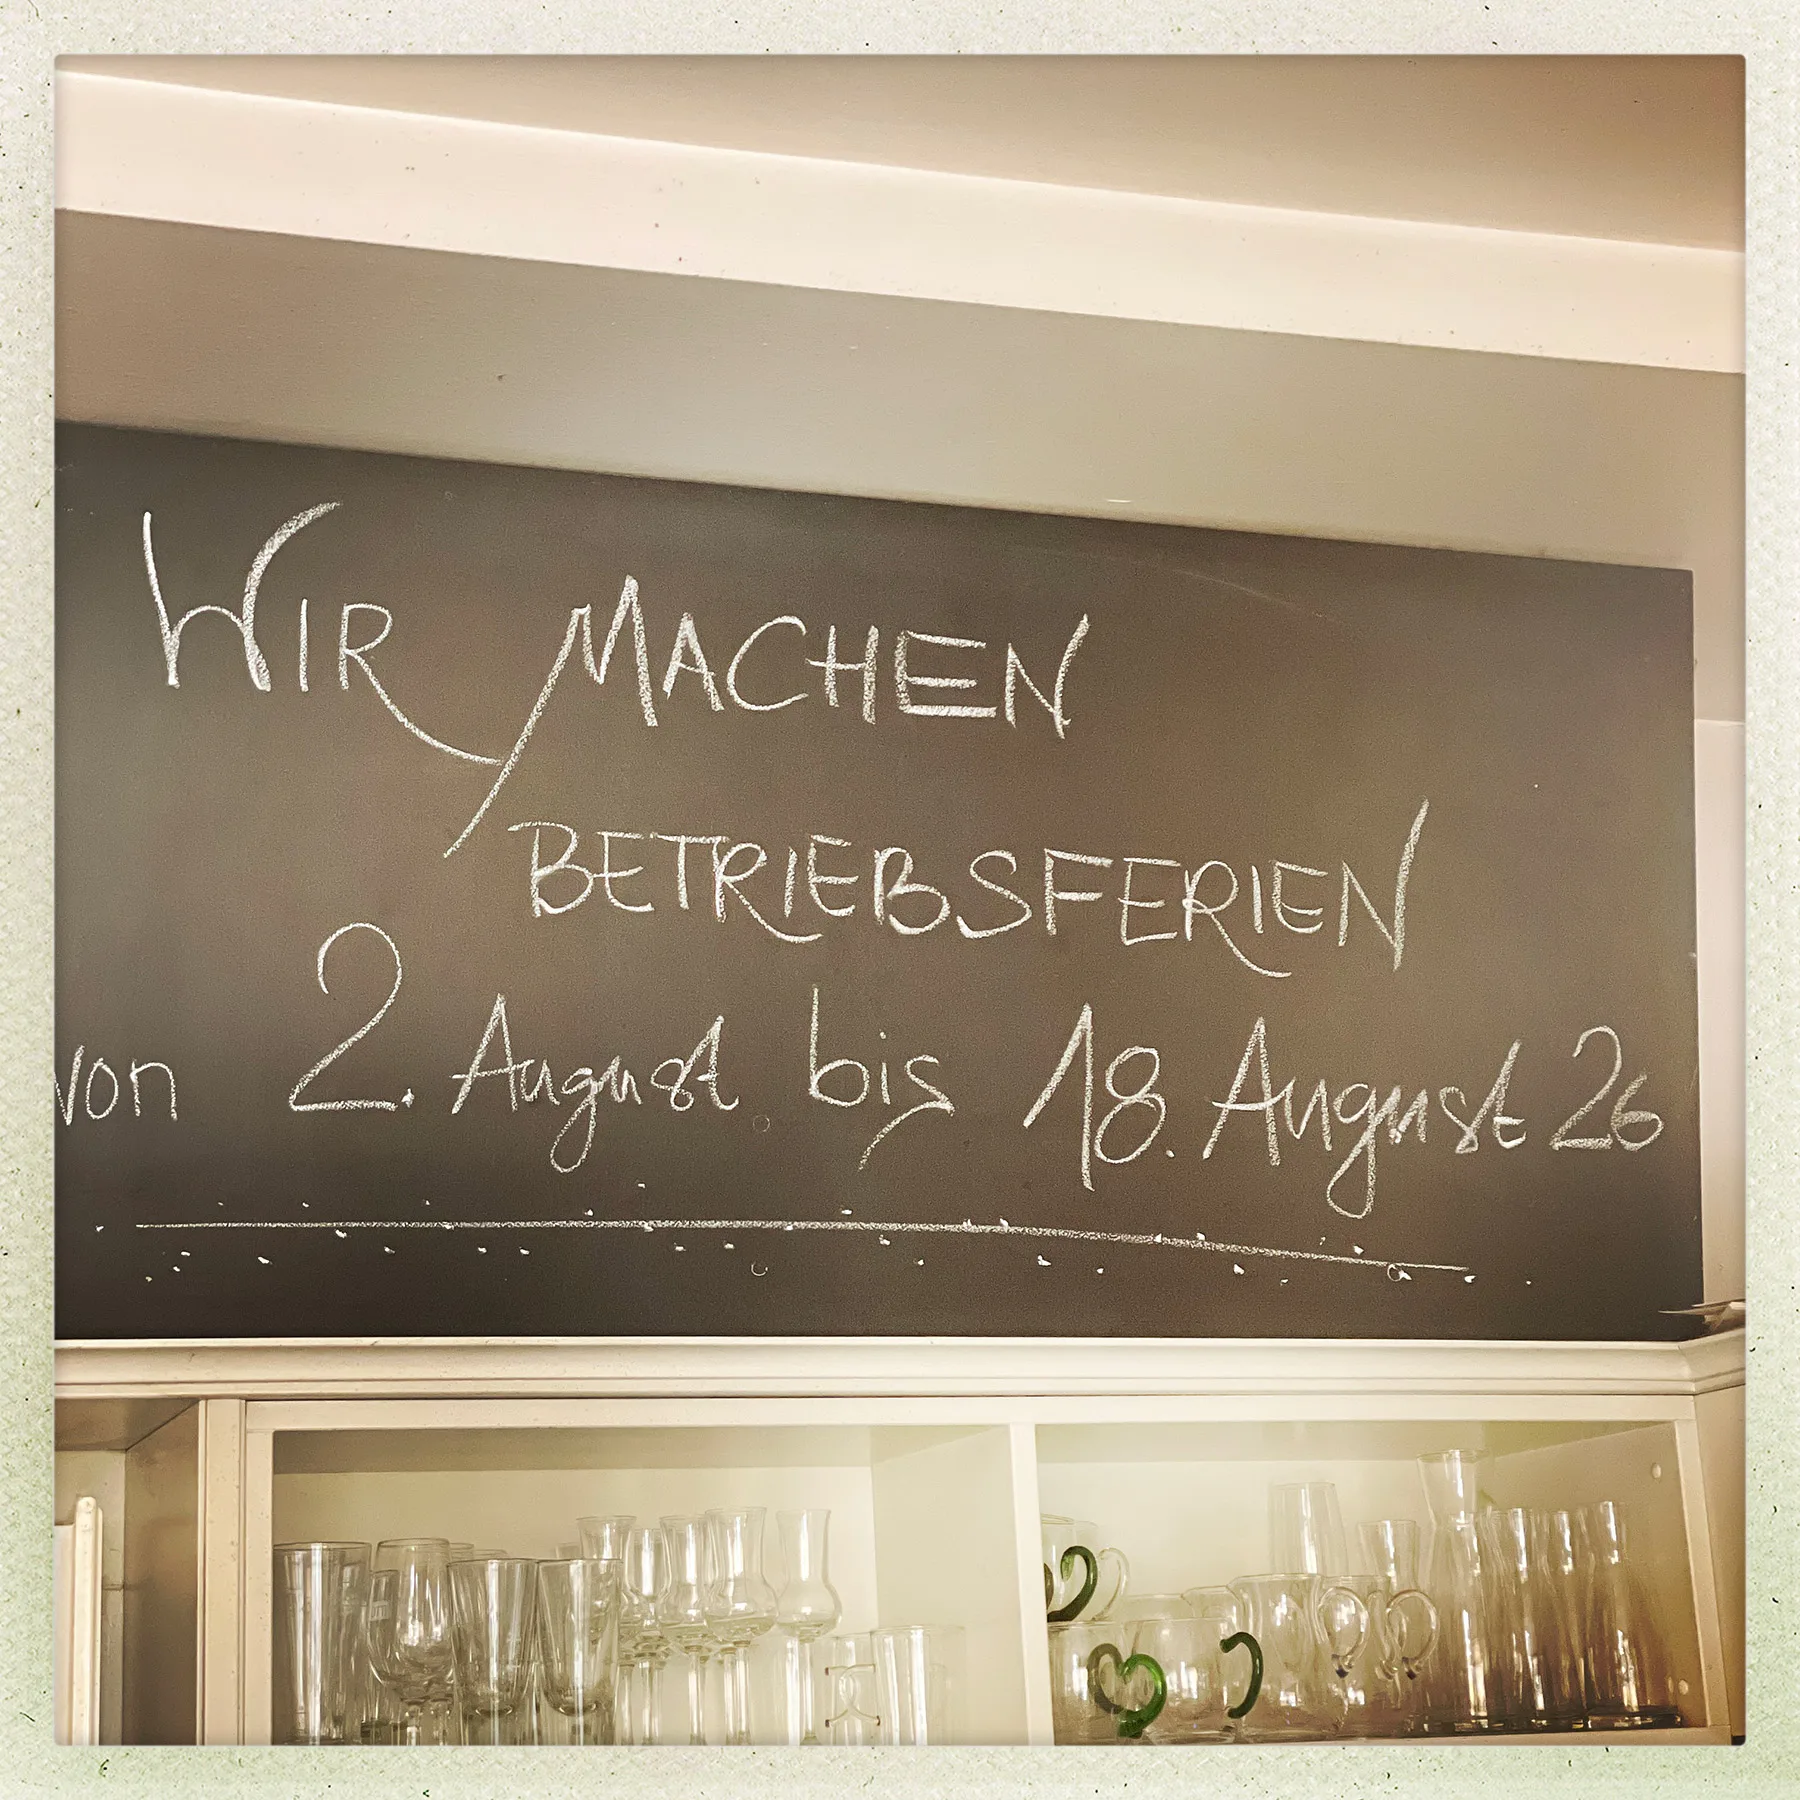 WIR MACHEN
BETRIEBSFERIEN
von 2. August bis 18. August 26